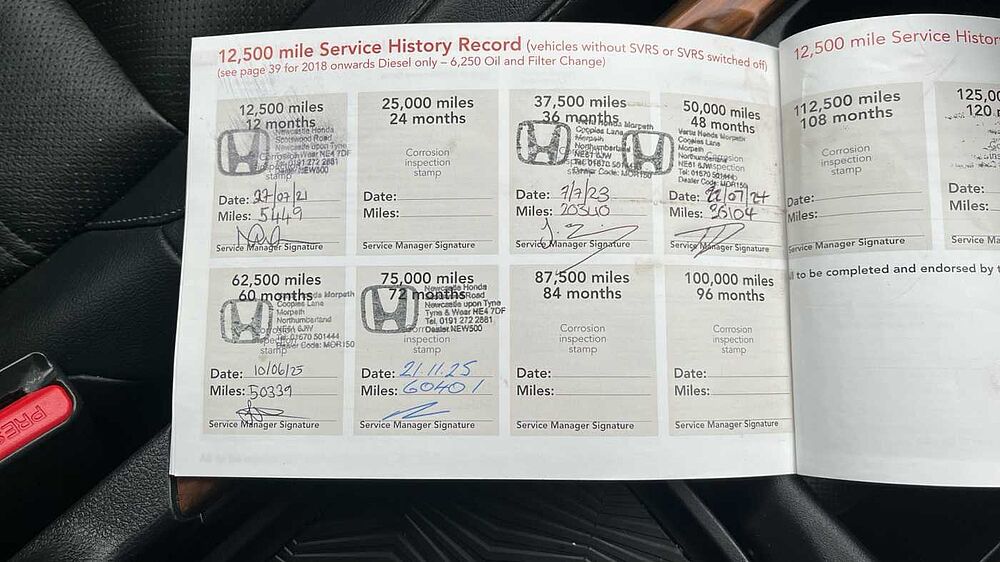 12,500 mile Service History Record (vehicles without SVRS or SVRS switched off)
(see page 39 for 2018 onwards Diesel only – 6,250 Oil and Filter Change)
12,500 miles
12 months
Newcastle Honda
Scotswood Road
Newcastle upon Tyne
Wear NE4 7DF
0191 272 2881
Dealer.NEW500
stamp
Date: 27/07/21
Miles: 5449
Service Manager Signature
25,000 miles
24 months
Corrosion
inspection
stamp
Date:
Miles:
Service Manager Signature
37,500 miles
36 months
Honda Morpeth
Coopies Lane
Morpeth
Northumberland
NE61 6JW
Tel: 01670 501444
Dealer Code: MOR150
Date: 7/7/23
Miles: 20340
Service Manager Signature
50,000 miles
48 months
Vertu Honda Morpeth
Coopies Lane
Morpeth
Northumberland
NE61 6JW
Tel: 01670 501444
Dealer Code: MOR150
Date: 22/07/24
Miles: 36104
Service Manager Signature
62,500 miles
60 months
Honda Morpeth
Coopies Lane
Morpeth
Northumberland
NE61 6JW
Tel: 01670 501444
Dealer Code: MOR150
stamp
Date: 10/06/25
Miles: 50339
Service Manager Signature
75,000 miles
72 months
Newcastle Honda
Road
Newcastle upon Tyne
Tyne & Wear NE4 7DF
Tel. 0191 272 2881
Dealer.NEW500
inspection
stamp
Date: 21.11.25
Miles: 60401
Service Manager Signature
87,500 miles
84 months
Corrosion
inspection
stamp
Date:
Miles:
Service Manager Signature
100,000 miles
96 months
Corrosion
inspection
stamp
Date:
Miles:
Service Manager Signature
12,500 mile Service Histor
112,500 miles
108 months
Corrosion
inspection
stamp
Date:
Miles:
Service Manager Signature
125,00
120
Date:
Miles:
Service Ma
ll to be completed and endorsed by t
PRES